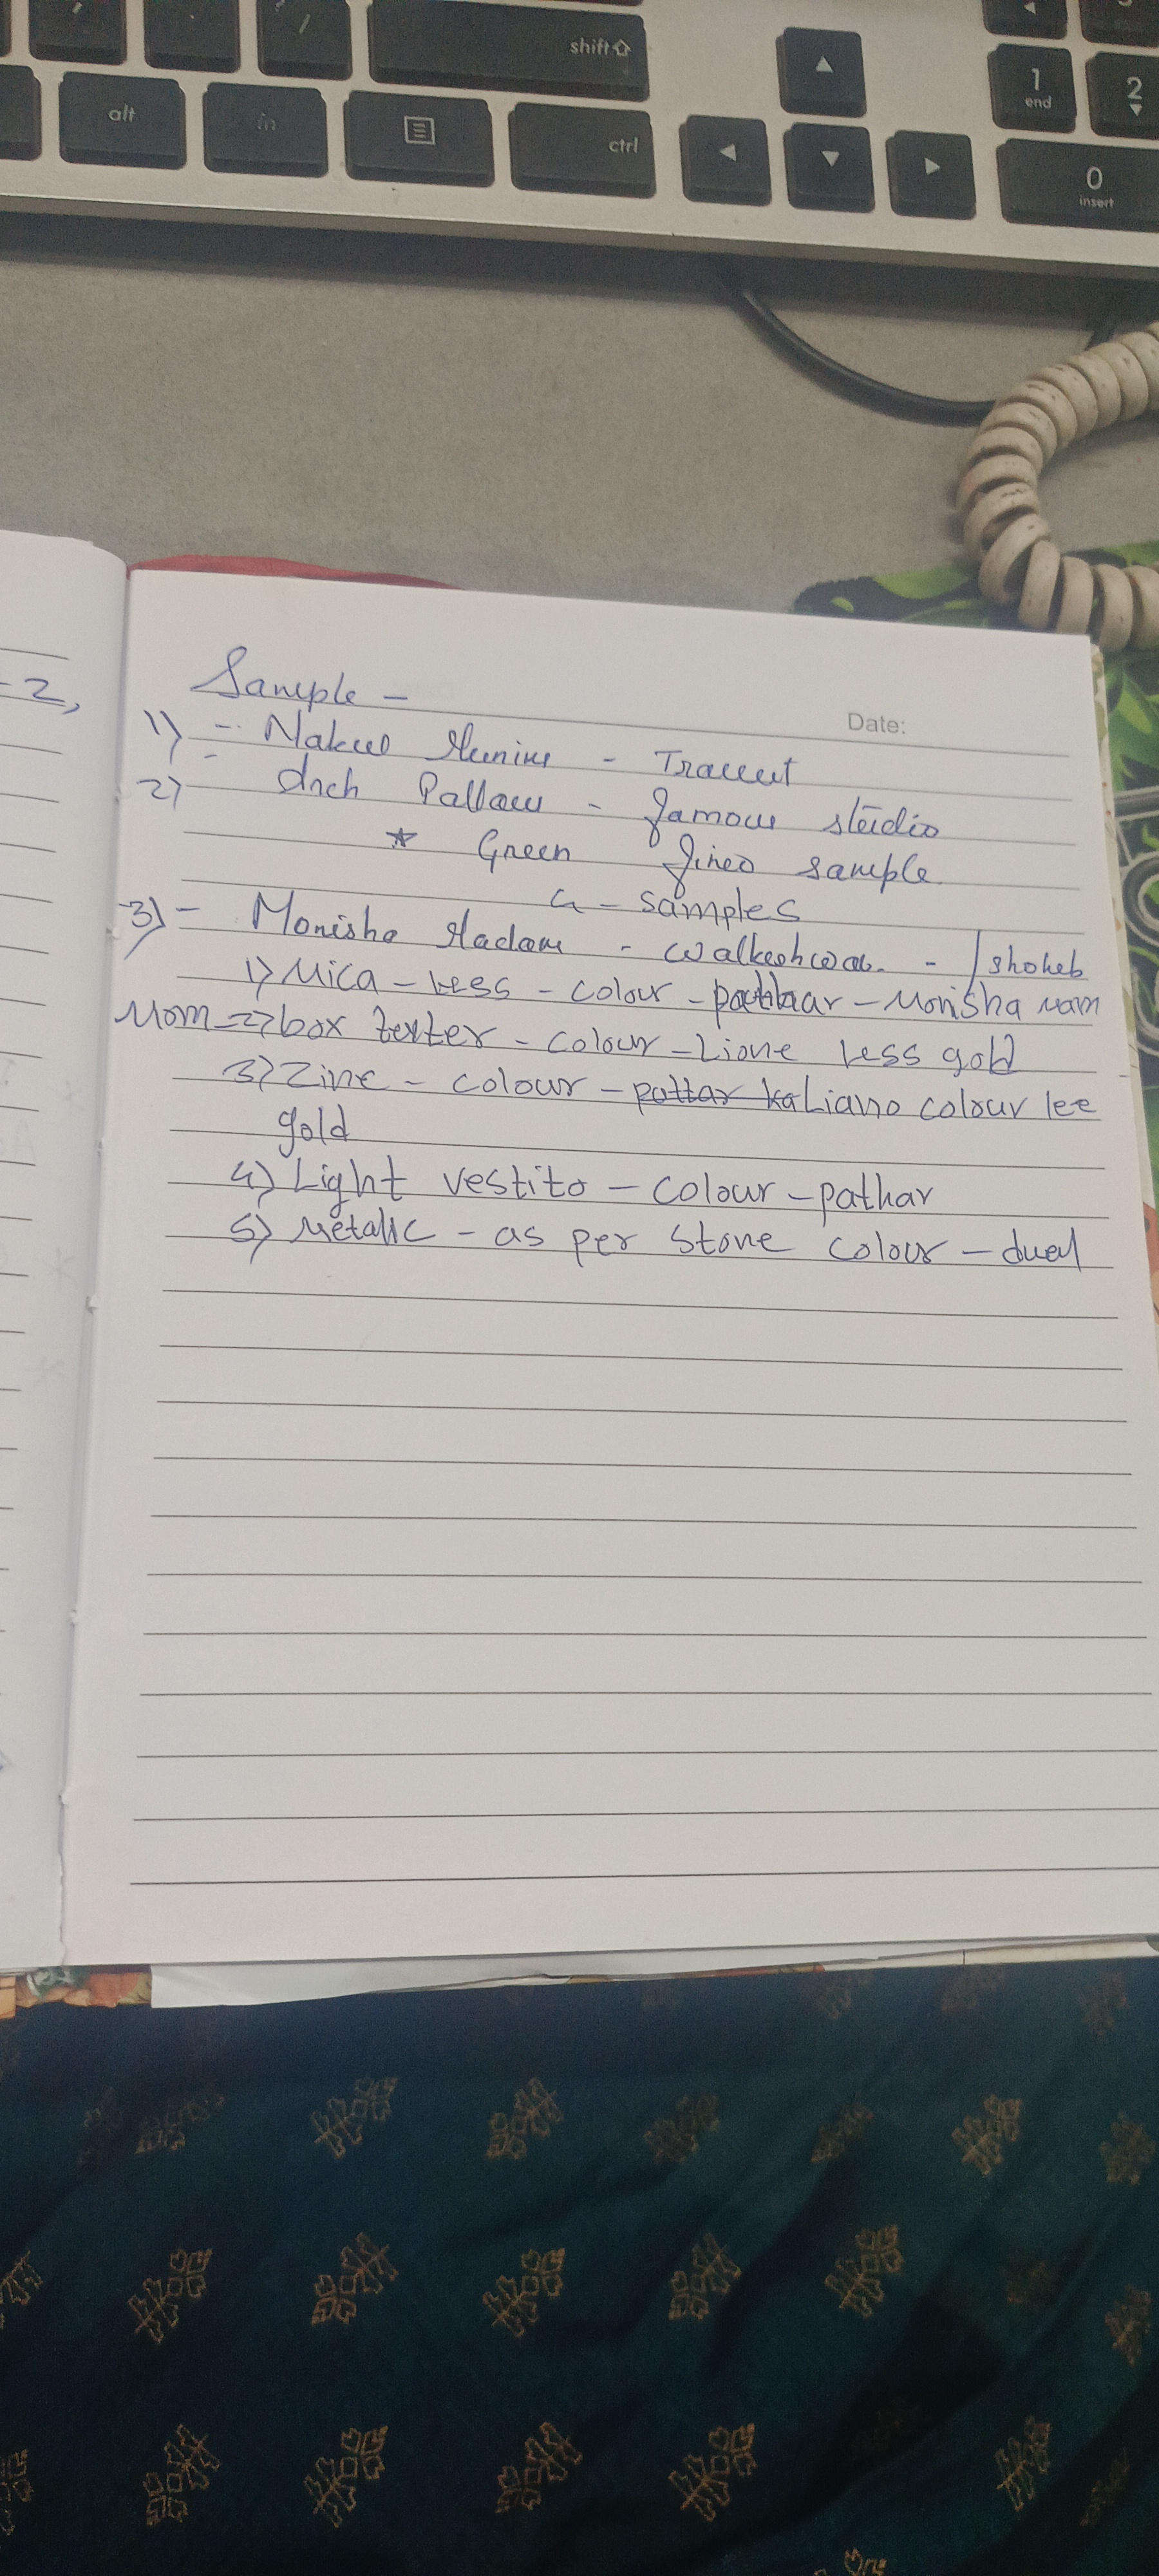 shift
alt
fn
ctrl
1
end
2
0
insert
-2,
Date:
Sample -
1) - Nakul - Traceut
2) Arch Pallav - famous studio
* Green fineo sample
4 - samples
3) - Monisha Madam - Walkeshwar - / shoheb
1) Mica - Less - colour - pathaar - Monisha mam
Mom 2) box texter - colour - Lione Less gold
3) Zinc - colour - pattar kaliano colour lee
gold
4) Light vestito - colour - pathar
5) Metalic - as per stone colour - duel